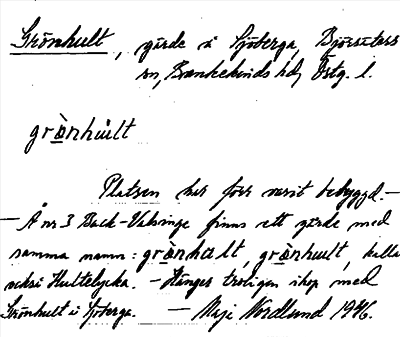 Grönhult, gärde i Sjöberga, Björsäters
sn, Bankekinds hd, Östg. l.
grònhùlt
Platsen har förr varit bebyggd. —
— Å nr 3 Back-Valvinge finns ett gärde med
samma namn: grònhult, grònhult, kallas
också Hultelycka. — Hänger troligen ihop med
Grönhult i Sjöberga. — Maj Nordlund 1946.